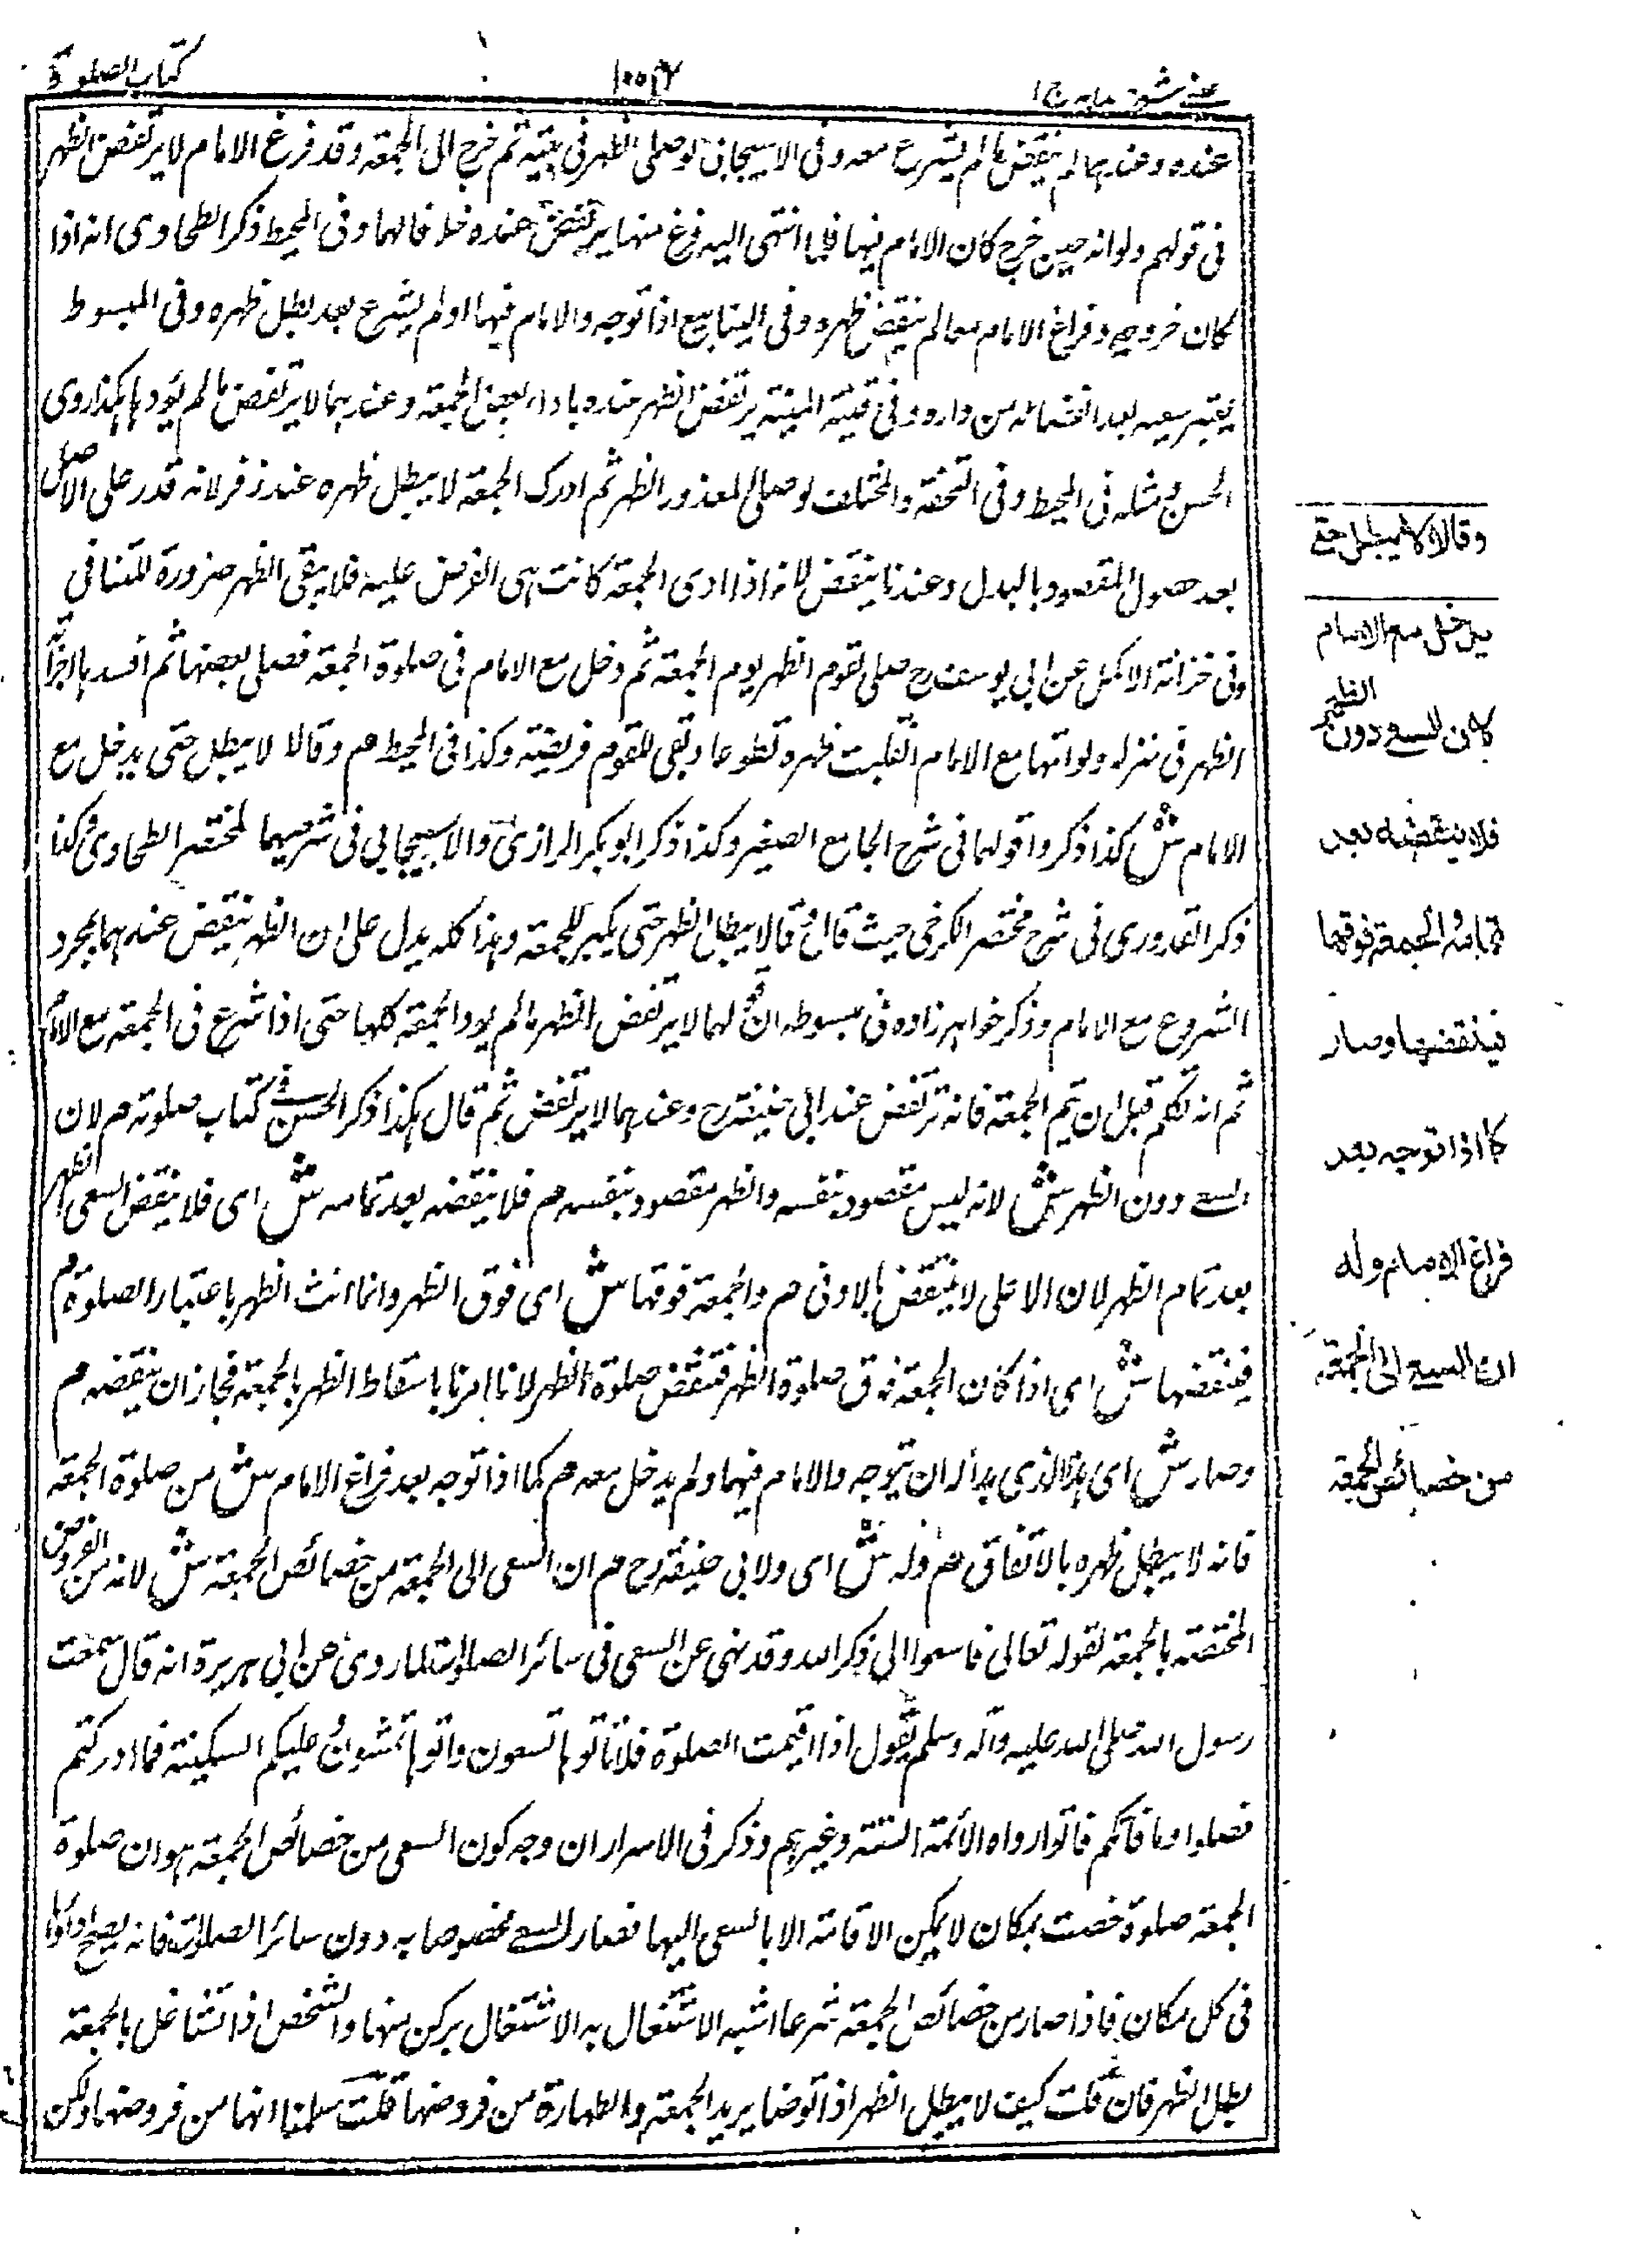 عینی شرح هدایه ج ۱
كتاب الصلوة
عنده وعندهما لم ينتقض مالم يشرع معه وفى الاسبيجابى لو صلى الظهر فى بيته ثم خرج الى الجمعة وقد فرغ الامام لا يرتفض الظهر
فى قولهم ولو انه حين خرج كان الامام فيها فلما انتهى اليه فرغ منها يرتفض عنده خلافا لهما وفى المحيط ذكر الطحاوى انه اذا
كان خروجه وفراغ الامام معا لم ينتقض ظهره وفى الينابيع اذا توجه والامام فيها اولم يشرع بعد بطل ظهره وفى المبسوط
يعتبر سعيه بعد انفصاله من داره وفى قنية المنية يرتفض الظهر عنده باداء بعض الجمعة وعندهما لا يرتفض مالم يؤدها هكذا روى
الحسن ومثله فى المحيط وفى التحفة والمختلف لو صلى المعذور الظهر ثم ادرك الجمعة لا يبطل ظهره عند زفر لانه قدر على الاصل
بعد حصول المقصود بالبدل وعندنا ينتقض لانه اذا ادى الجمعة كانت هى الفرض عليه فلا يبقى الظهر ضرورة للتنافى
وفى خزانة الاكمل عن ابى يوسف رح صلى بقوم الظهر يوم الجمعة ثم دخل مع الامام فى صلوة الجمعة فصلى بعضها ثم افسدها اجزأه
الظهر فى منزله ولو اتمها مع الامام انقلبت ظهره تطوعا وبقى للقوم فريضة وكذا فى المحيط م وقالا لا يبطل حتى يدخل مع
الامام ش كذا ذكروا قولهما فى شرح الجامع الصغير وكذا ذكر ابو بكر الرازى والاسبيجابى فى شرحيهما لمختصر الطحاوى وكذا
ذكر القدورى فى شرح مختصر الكرخى حيث قال قالا يبطل الظهر حتى يكبر للجمعة وهذا كله يدل على ان الظهر ينتقض عندهما بمجرد
الشروع مع الامام وذكر خواهر زاده فى مبسوطه ان قولهما لا يرتفض الظهر مالم يؤد الجمعة كلها حتى اذا شرع فى الجمعة مع الامام
ثم انه تكلم قبل ان يتم الجمعة فانه ترتفض عند ابى حنيفة رح وعندهما لا يرتفض ثم قال هكذا ذكر الحسن فى كتاب صلوته م لان
السعى دون الظهر ش لانه ليس مقصود بنفسه والظهر مقصود بنفسه م فلا ينقضه بعد تمامه ش اى فلا ينقض السعى الظهر
بعد تمام الظهر لان الاعلى لا ينتقض بالادنى م والجمعة فوقها ش اى فوق الظهر وانما انث الظهر باعتبار الصلوة م
فينقضها ش اى اذا كان الجمعة فوق صلوة الظهر فتنقض صلوة الظهر لانا امرنا باسقاط الظهر بالجمعة فجاز ان ينقضه م
وصار ش اى هذا الذى بدأ له ان يتوجه والامام فيها ولم يدخل معه م كما اذا توجه بعد فراغ الامام ش من صلوة الجمعة
فانه لا يبطل ظهره بالاتفاق م وله ش اى ولابى حنيفة رح م ان السعى الى الجمعة من خصائص الجمعة ش لانه من الفروض
المختصة بالجمعة لقوله تعالى فاسعوا الى ذكر الله وقد نهى عن السعى فى سائر الصلوات لما روى عن ابى هريرة انه قال سمعت
رسول الله صلى الله عليه وآله وسلم يقول اذا اقيمت الصلوة فلا تأتوها تسعون واتوها تمشون عليكم السكينة فما ادركتم
فصلوا وما فاتكم فاتموا رواه الائمة الستة وغيرهم وذكر فى الاسرار ان وجه كون السعى من خصائص الجمعة هو ان صلوة
الجمعة صلوة خصت بمكان لا يمكن الاقامة الا بالسعى اليها فصار السعى مخصوصا به دون سائر الصلوات فانه يصح اداؤها
فى كل مكان فاذا صار من خصائص الجمعة شرعا اشبه الاشتغال به الاشتغال بركن منها والشخص اذا تشاغل بالجمعة
بطل الظهر فان قلت كيف لا يبطل الظهر اذا توضا يريد الجمعة والطهارة من فروضها قلت سلمنا انها من فروضها ولكن
وقالا لا يبطل حتى
يدخل مع الامام
لان السعى دون الظهر
فلا ينقضه بعد
تمامه والجمعة فوقها
فينقضها وصار
كما اذا توجه بعد
فراغ الامام وله
ان السعى الى الجمعة
من خصائص الجمعة